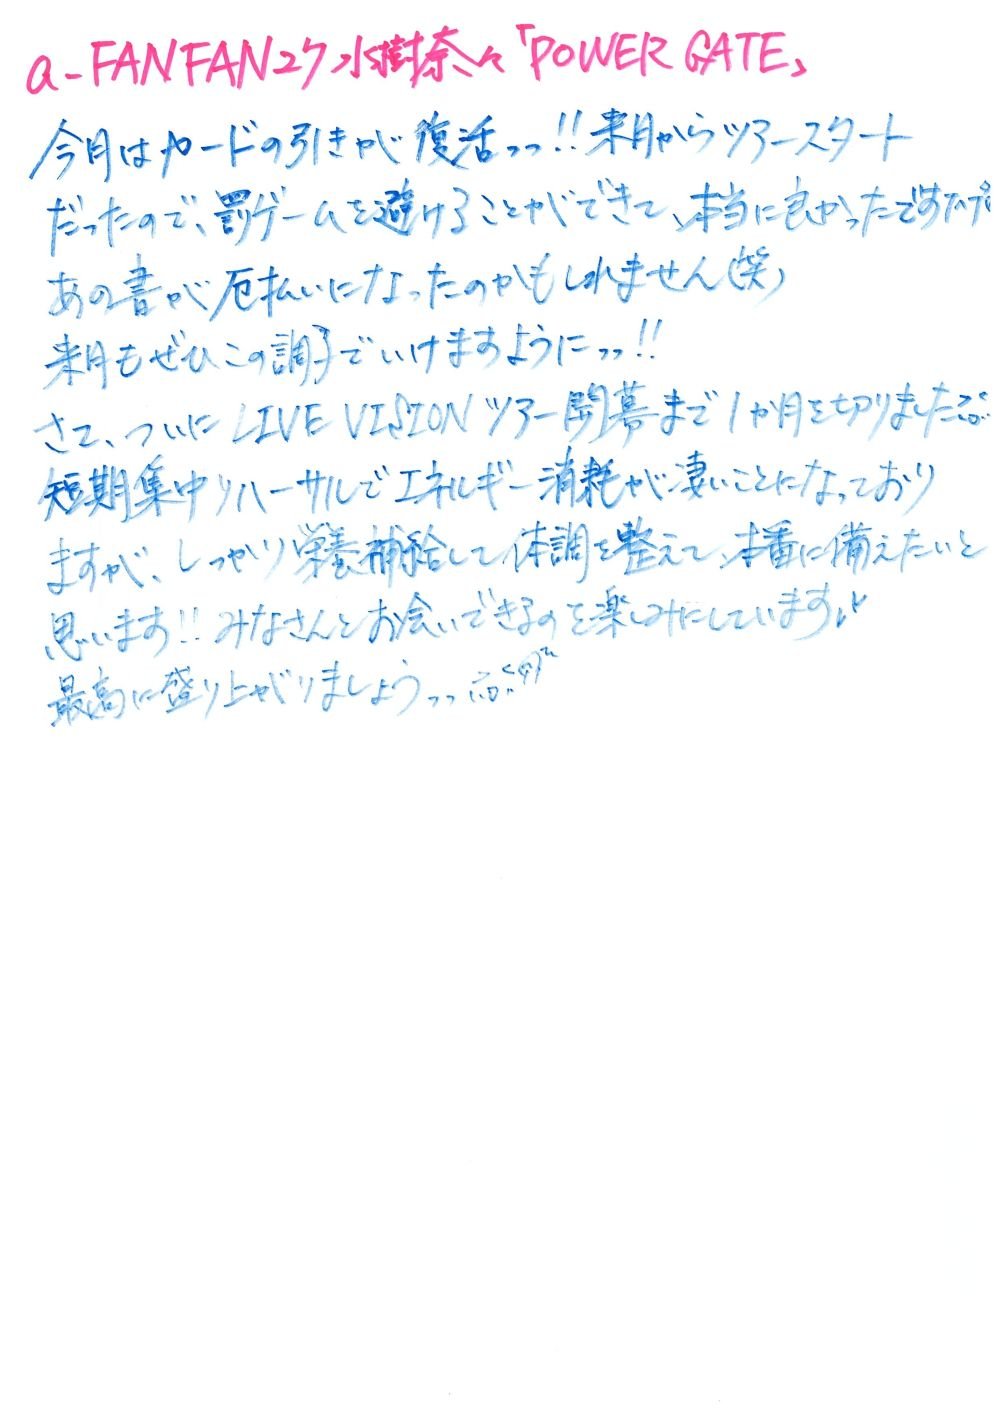 a-FANFAN27 水樹奈々「POWER GATE」
今月はカードの引きが復活っっ!!来月からツアースタート
だったので、罰ゲームを避けることができて、本当に良かったです
あの書が厄払いになったのかもしれません(笑)
来月もぜひこの調子でいけますようにっっ!!
さて、ついに LIVE VISION ツアー開幕まで1か月を切りました
短期集中リハーサルでエネルギー消耗が凄いことになっており
ますが、しっかり栄養補給して体調を整えて、本番に備えたいと
思います!!みなさんとお会いできるのを楽しみにしています♪
最高に盛り上がりましょうっっ